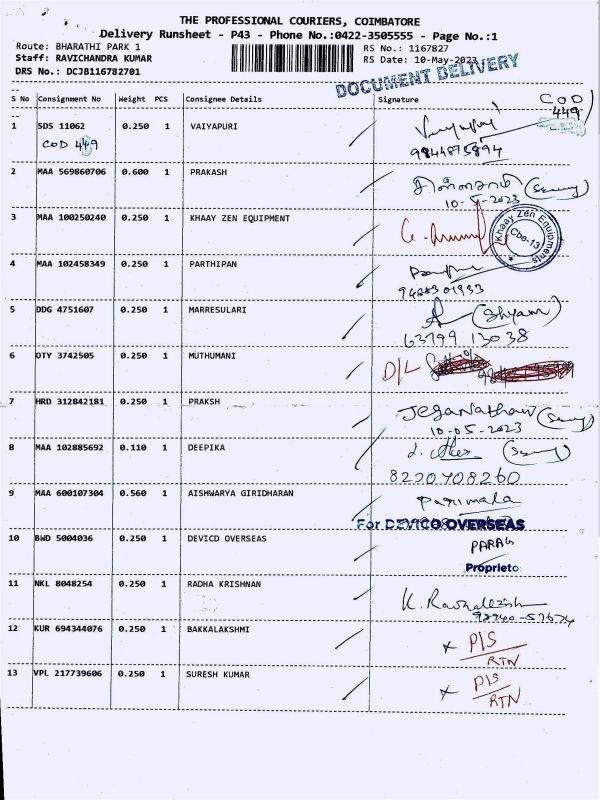 THE PROFESSIONAL COURIERS, COIMBATORE
Delivery Runsheet - P43 - Phone No.:0422-3505555 - Page No.:1
Route: BHARATHI PARK 1 RS No.: 1167827
Staff: RAVICHANDRA KUMAR RS Date: 10-May-2023
DRS No.: DCJB116782701
DOCUMENT DELIVERY
S No Consignment No Weight PCS Consignee Details Signature
COD
449
1 SDS 11062 0.250 1 VAIYAPURI
COD 449
9844875894
2 MAA 569860706 0.600 1 PRAKASH
10-5-2023
3 MAA 100250240 0.250 1 KHAAY ZEN EQUIPMENT
Khaay Zen Equipments
Cbe-13
4 MAA 102458349 0.250 1 PARTHIPAN
9488301933
5 DDG 4751607 0.250 1 MARRESULARI (Shyam)
63799 13038
6 OTY 3742505 0.250 1 MUTHUMANI D/L
7 HRD 312842181 0.250 1 PRAKSH Jeganathan
10-05-2023
8 MAA 102885692 0.110 1 DEEPIKA
8220708260
9 MAA 600107304 0.560 1 AISHWARYA GIRIDHARAN Parimala
For DEVICO OVERSEAS
10 BWD 5004036 0.250 1 DEVICO OVERSEAS PARAG
Proprieto
11 NKL 8048254 0.250 1 RADHA KRISHNAN
12 KUR 694344076 0.250 1 BAKKALAKSHMI x P/S
RTN
13 VPL 217739606 0.250 1 SURESH KUMAR x P/S
RTN